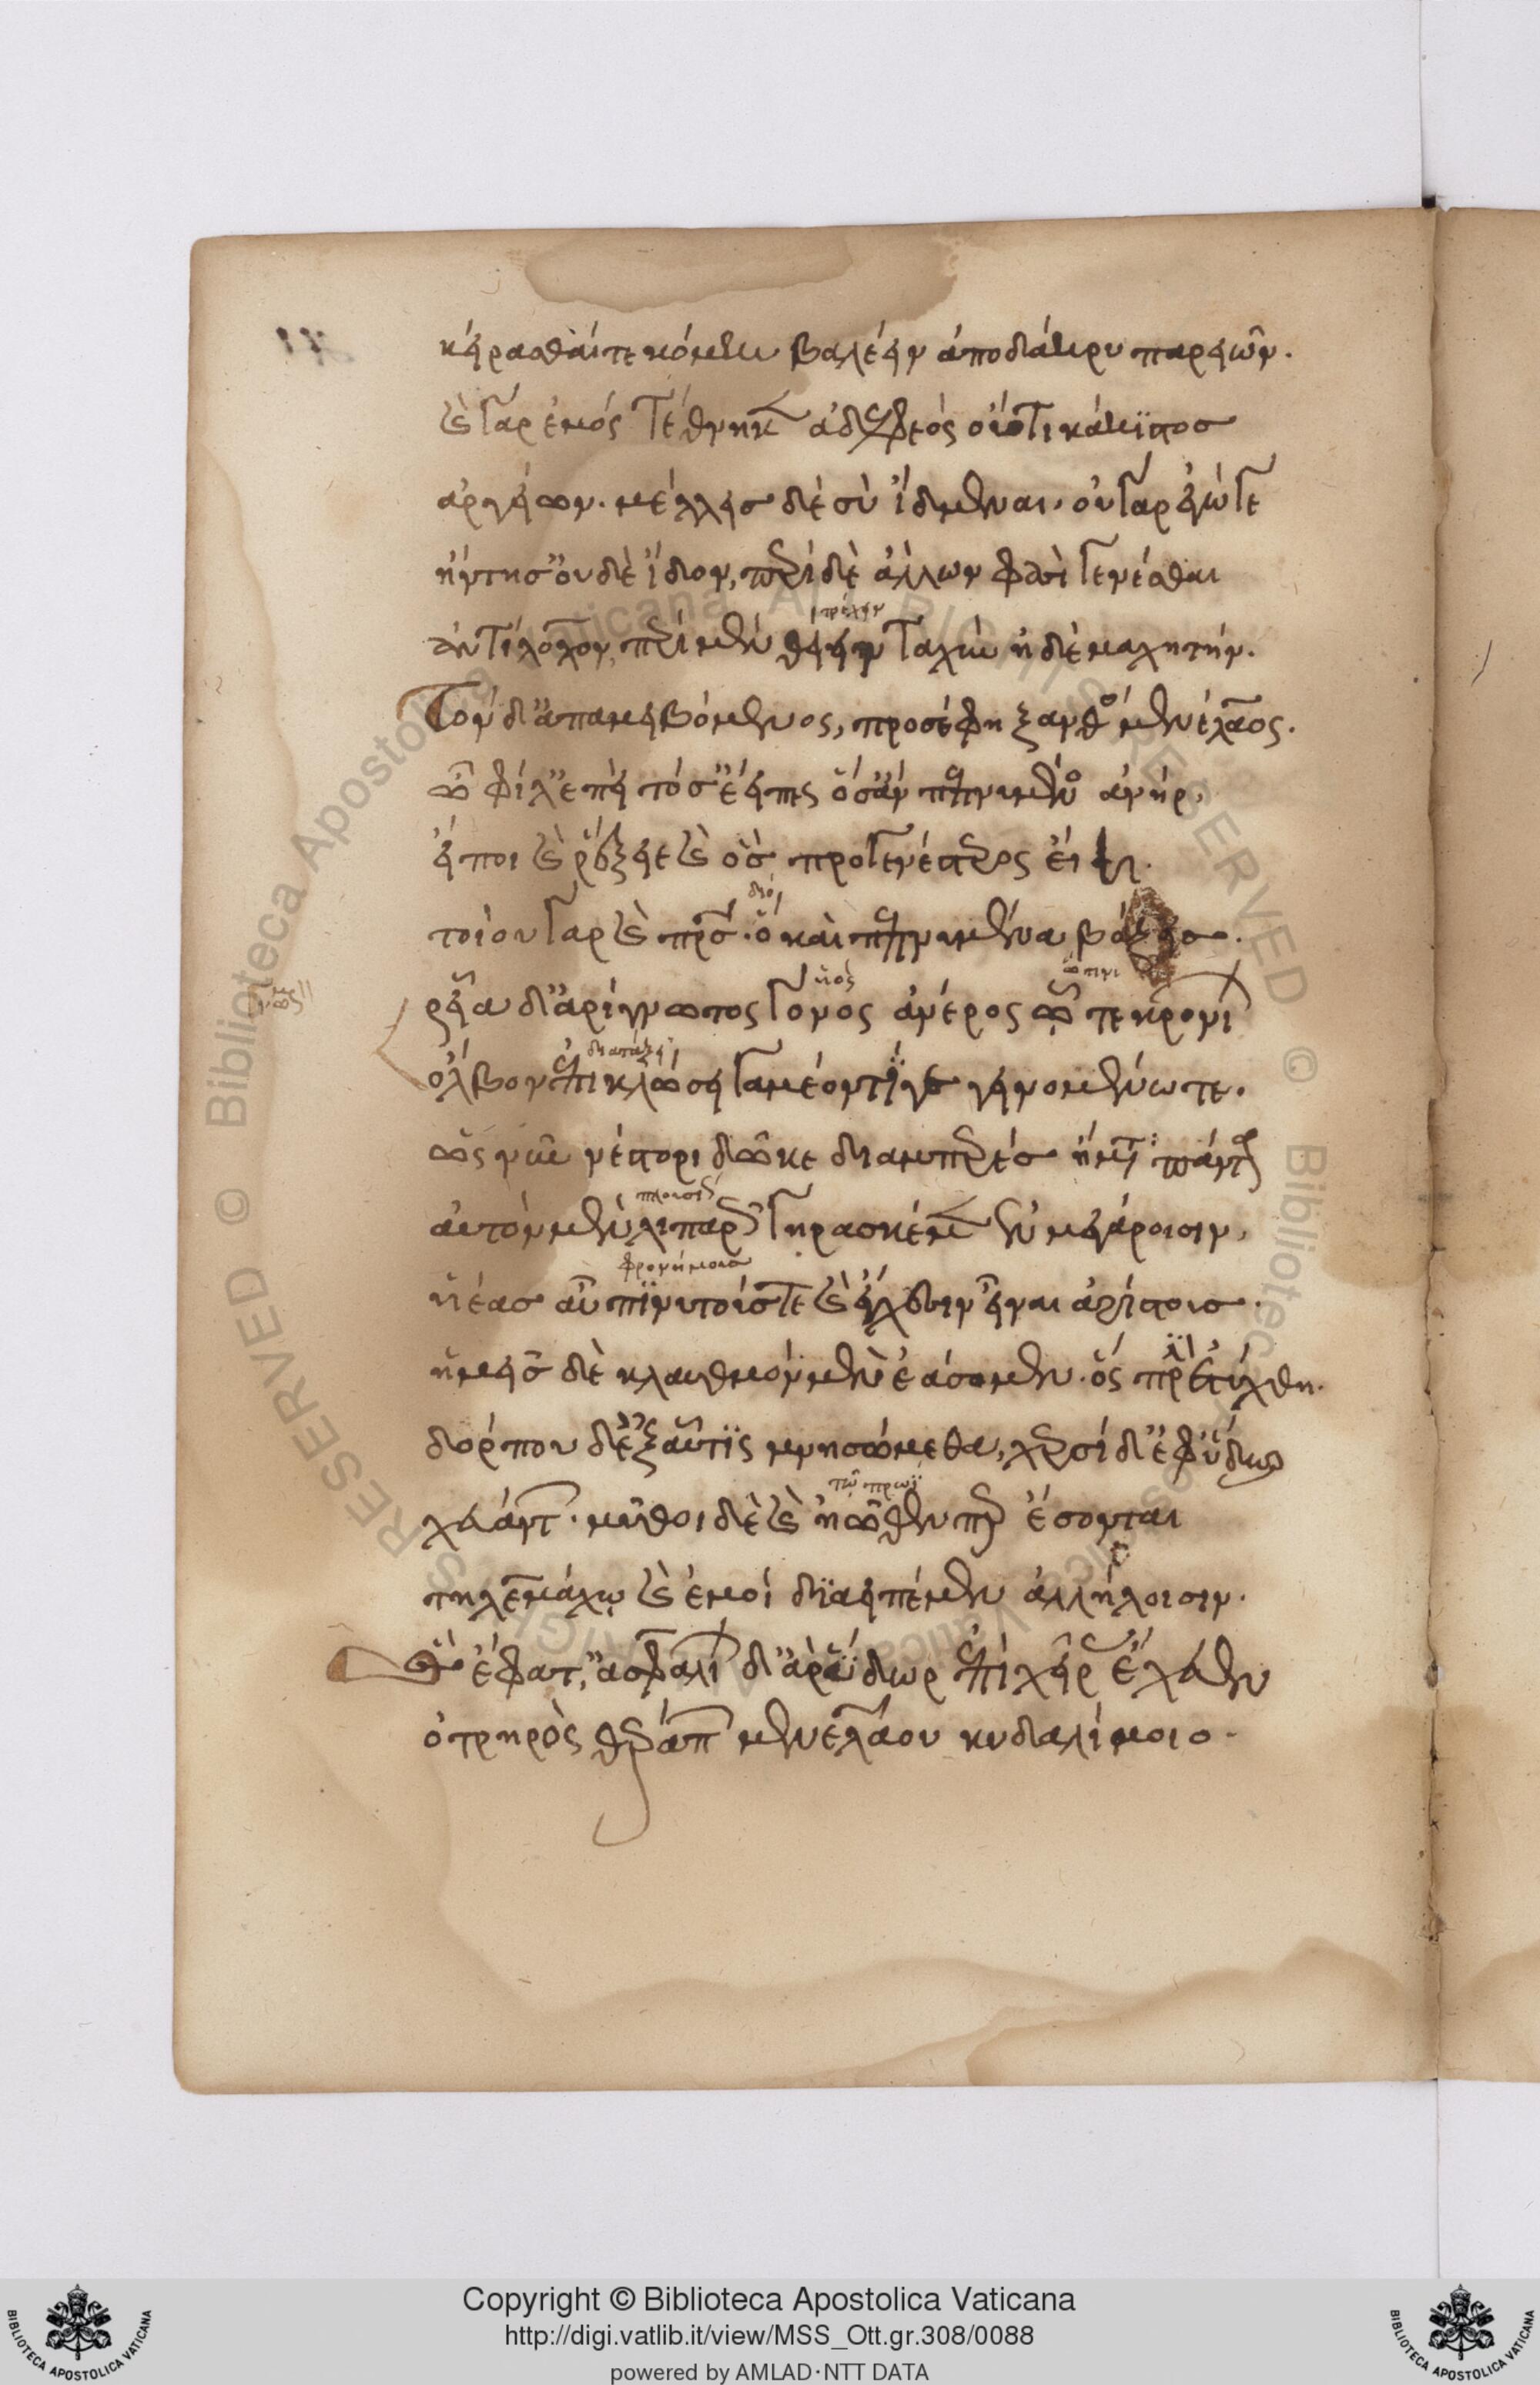 κείρασθαί τε κόμην βαλέειν ἀπὸ δάκρυ παρειῶν.
καὶ γὰρ ἐμός τέθνηκεν ἀδελφεός οὔ τι κάκιστος
ἀργείων. μέλλεις δὲ σὺ ἴδμεναι. οὐ γὰρ ἐγώ γε
ἤντησ' οὐδὲ ἴδον, περὶ δὲ ἄλλων φασὶ γενέσθαι
τρέχειν
ἀντίλοχον, περὶ μὲν θείειν ταχὺν ἠδὲ μαχητήν.
Τὸν δ' ἀπαμειβόμενος, προσέφη ξανθὸς μενέλαος.
ὦ φίλ' ἐπεὶ τόσ' εἶπες ὅσ' ἂν πεπνυμένος ἀνήρ,
εἴποι καὶ ῥέξειε καὶ ὃς προγενέστερος εἴη.
διό
τοίου γὰρ καὶ πατρός. ὃ καὶ πεπνυμένα βάζεις.
ῥεῖα δ' ἀρίγνωτος γόνος ἀνέρος ᾧ τε κρονίων
ὄλβον ἐπικλώσει γαμέοντί γε γεινομένω τε.
ὡς νῦν νέστορι δῶκε διαμπερὲς ἤματα πάντα
αὐτὸν μὲν λιπαρῶς γηρασκέμεν ἐν μεγάροισιν,
φρονήμους
υἱέας αὖ πινυτούς τε καὶ ἔγχεσιν εἶναι ἀρίστους.
ἡμεῖς δὲ κλαυθμὸν μὲν ἐάσομεν. ὃς πρὶν ἐτύχθη.
δόρπου δ' ἐξαῦτις μνησώμεθα, χερσὶ δ' ἐφ' ὕδωρ
τῶ πρωῒ
χευάντων. μῦθοι δὲ καὶ ἠῶθεν περ ἔσονται
τηλεμάχῳ καὶ ἐμοὶ διαειπέμεν ἀλλήλοισιν.
Ὣς ἔφατ', ἀσφαλίων δ' ἄρ' ὕδωρ ἐπὶ χεῖρας ἔχευεν
ὀτρηρὸς θεράπων μενελάου κυδαλίμοιο.
© Biblioteca Apostolica Vaticana ALL RIGHTS RESERVED
Copyright © Biblioteca Apostolica Vaticana
http://digi.vatlib.it/view/MSS_Ott.gr.308/0088
powered by AMLAD·NTT DATA
BIBLIOTECA APOSTOLICA VATICANA
BIBLIOTECA APOSTOLICA VATICANA